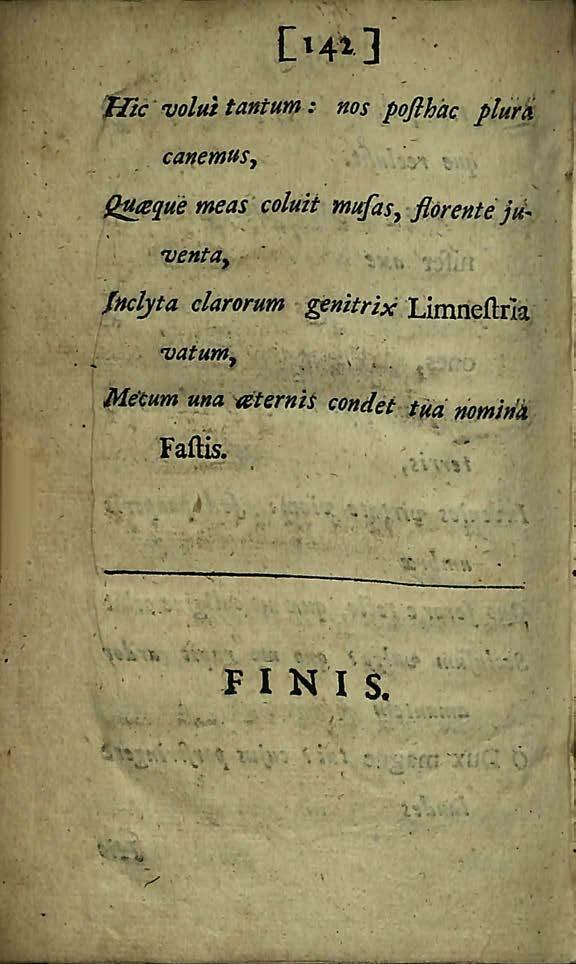 [142]
Hic volui tantum: nos poſthac plura
canemus,
Quæque meas coluit muſas, florente ju-
venta,
Inclyta clarorum genitrix Limneſtria
vatum,
Mecum una æternis condet tua nomina
Faſtis.
FINIS.